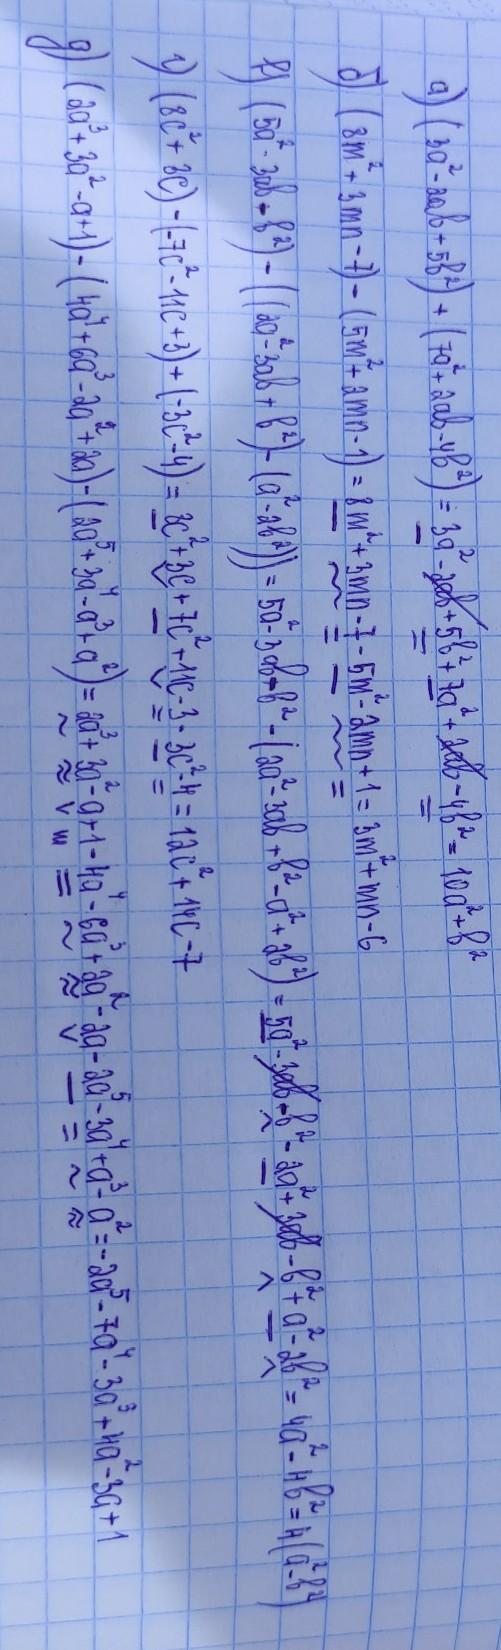 а) (3a² - 2ab + 5b²) + (7a² + 2ab - 4b²) = 3a² - 2ab + 5b² + 7a² + 2ab - 4b² = 10a² + b²
б) (8m² + 3mn - 7) - (5m² + 2mn - 1) = 8m² + 3mn - 7 - 5m² - 2mn + 1 = 3m² + mn - 6
в) (5a² - 3ab - b²) - ((2a² - 3ab + b²) - (a² - 2b²)) = 5a² - 3ab - b² - (2a² - 3ab + b² - a² + 2b²) = 5a² - 3ab - b² - 2a² + 3ab - b² + a² - 2b² = 4a² - 4b² = 4(a² - b²)
г) (8c² + 3c) - (-7c² - 11c + 3) + (-3c² - 4) = 8c² + 3c + 7c² + 11c - 3 - 3c² - 4 = 12c² + 14c - 7
д) (2a³ + 3a² - a + 1) - (4a⁴ + 6a³ - 2a² + 2a) - (2a⁵ + 3a⁴ - a³ + a²) = 2a³ + 3a² - a + 1 - 4a⁴ - 6a³ + 2a² - 2a - 2a⁵ - 3a⁴ + a³ - a² = -2a⁵ - 7a⁴ - 3a³ + 4a² - 3a + 1